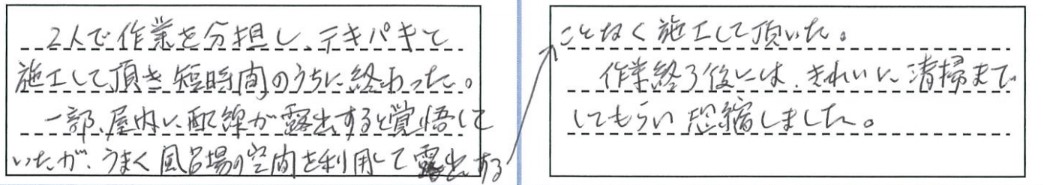 2人で作業を分担し、テキパキと
施工して頂き短時間のうちに終わった。
一部、屋内に配線が露出すると覚悟して
いたが、うまく風呂場の空間を利用して露出する
ことなく施工して頂いた。
作業終了後には、きれいに清掃まで
してもらい恐縮しました。